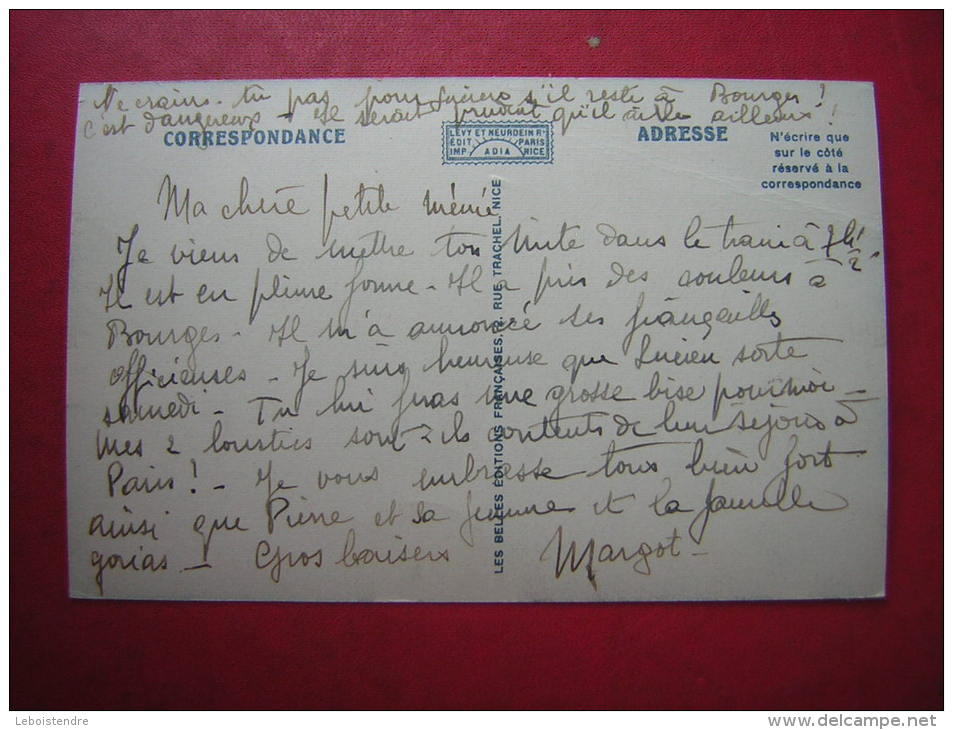 Ne crains-tu pas pour Lucien s'il reste à Bourges!
C'est dangereux - Il serait prudent qu'il aille ailleurs!
CORRESPONDANCE
LÉVY ET NEURDEIN Rs
ÉDIT. PARIS
IMP. ADIA NICE
ADRESSE
N'écrire que
sur le côté
réservé à la
correspondance
LES BELLES ÉDITIONS FRANÇAISES, RUE TRACHEL, NICE
Ma chère petite mémé
Je viens de mettre ton dans le train à 7h 1/2
Il est en pleine forme - Il a pris des couleurs à
Bourges - Il m'a annoncé ses fiançailles
officieuses - Je suis heureuse que Lucien sorte
samedi - Tu lui feras une grosse bise pour moi -
Mes 2 loustics sont-ils contents de leur séjour à
Paris! - Je vous embrasse tous bien fort
ainsi que Pierre et sa femme et la famille
gorias - Gros baisers Margot -
Leboistendre
www.delcampe.net